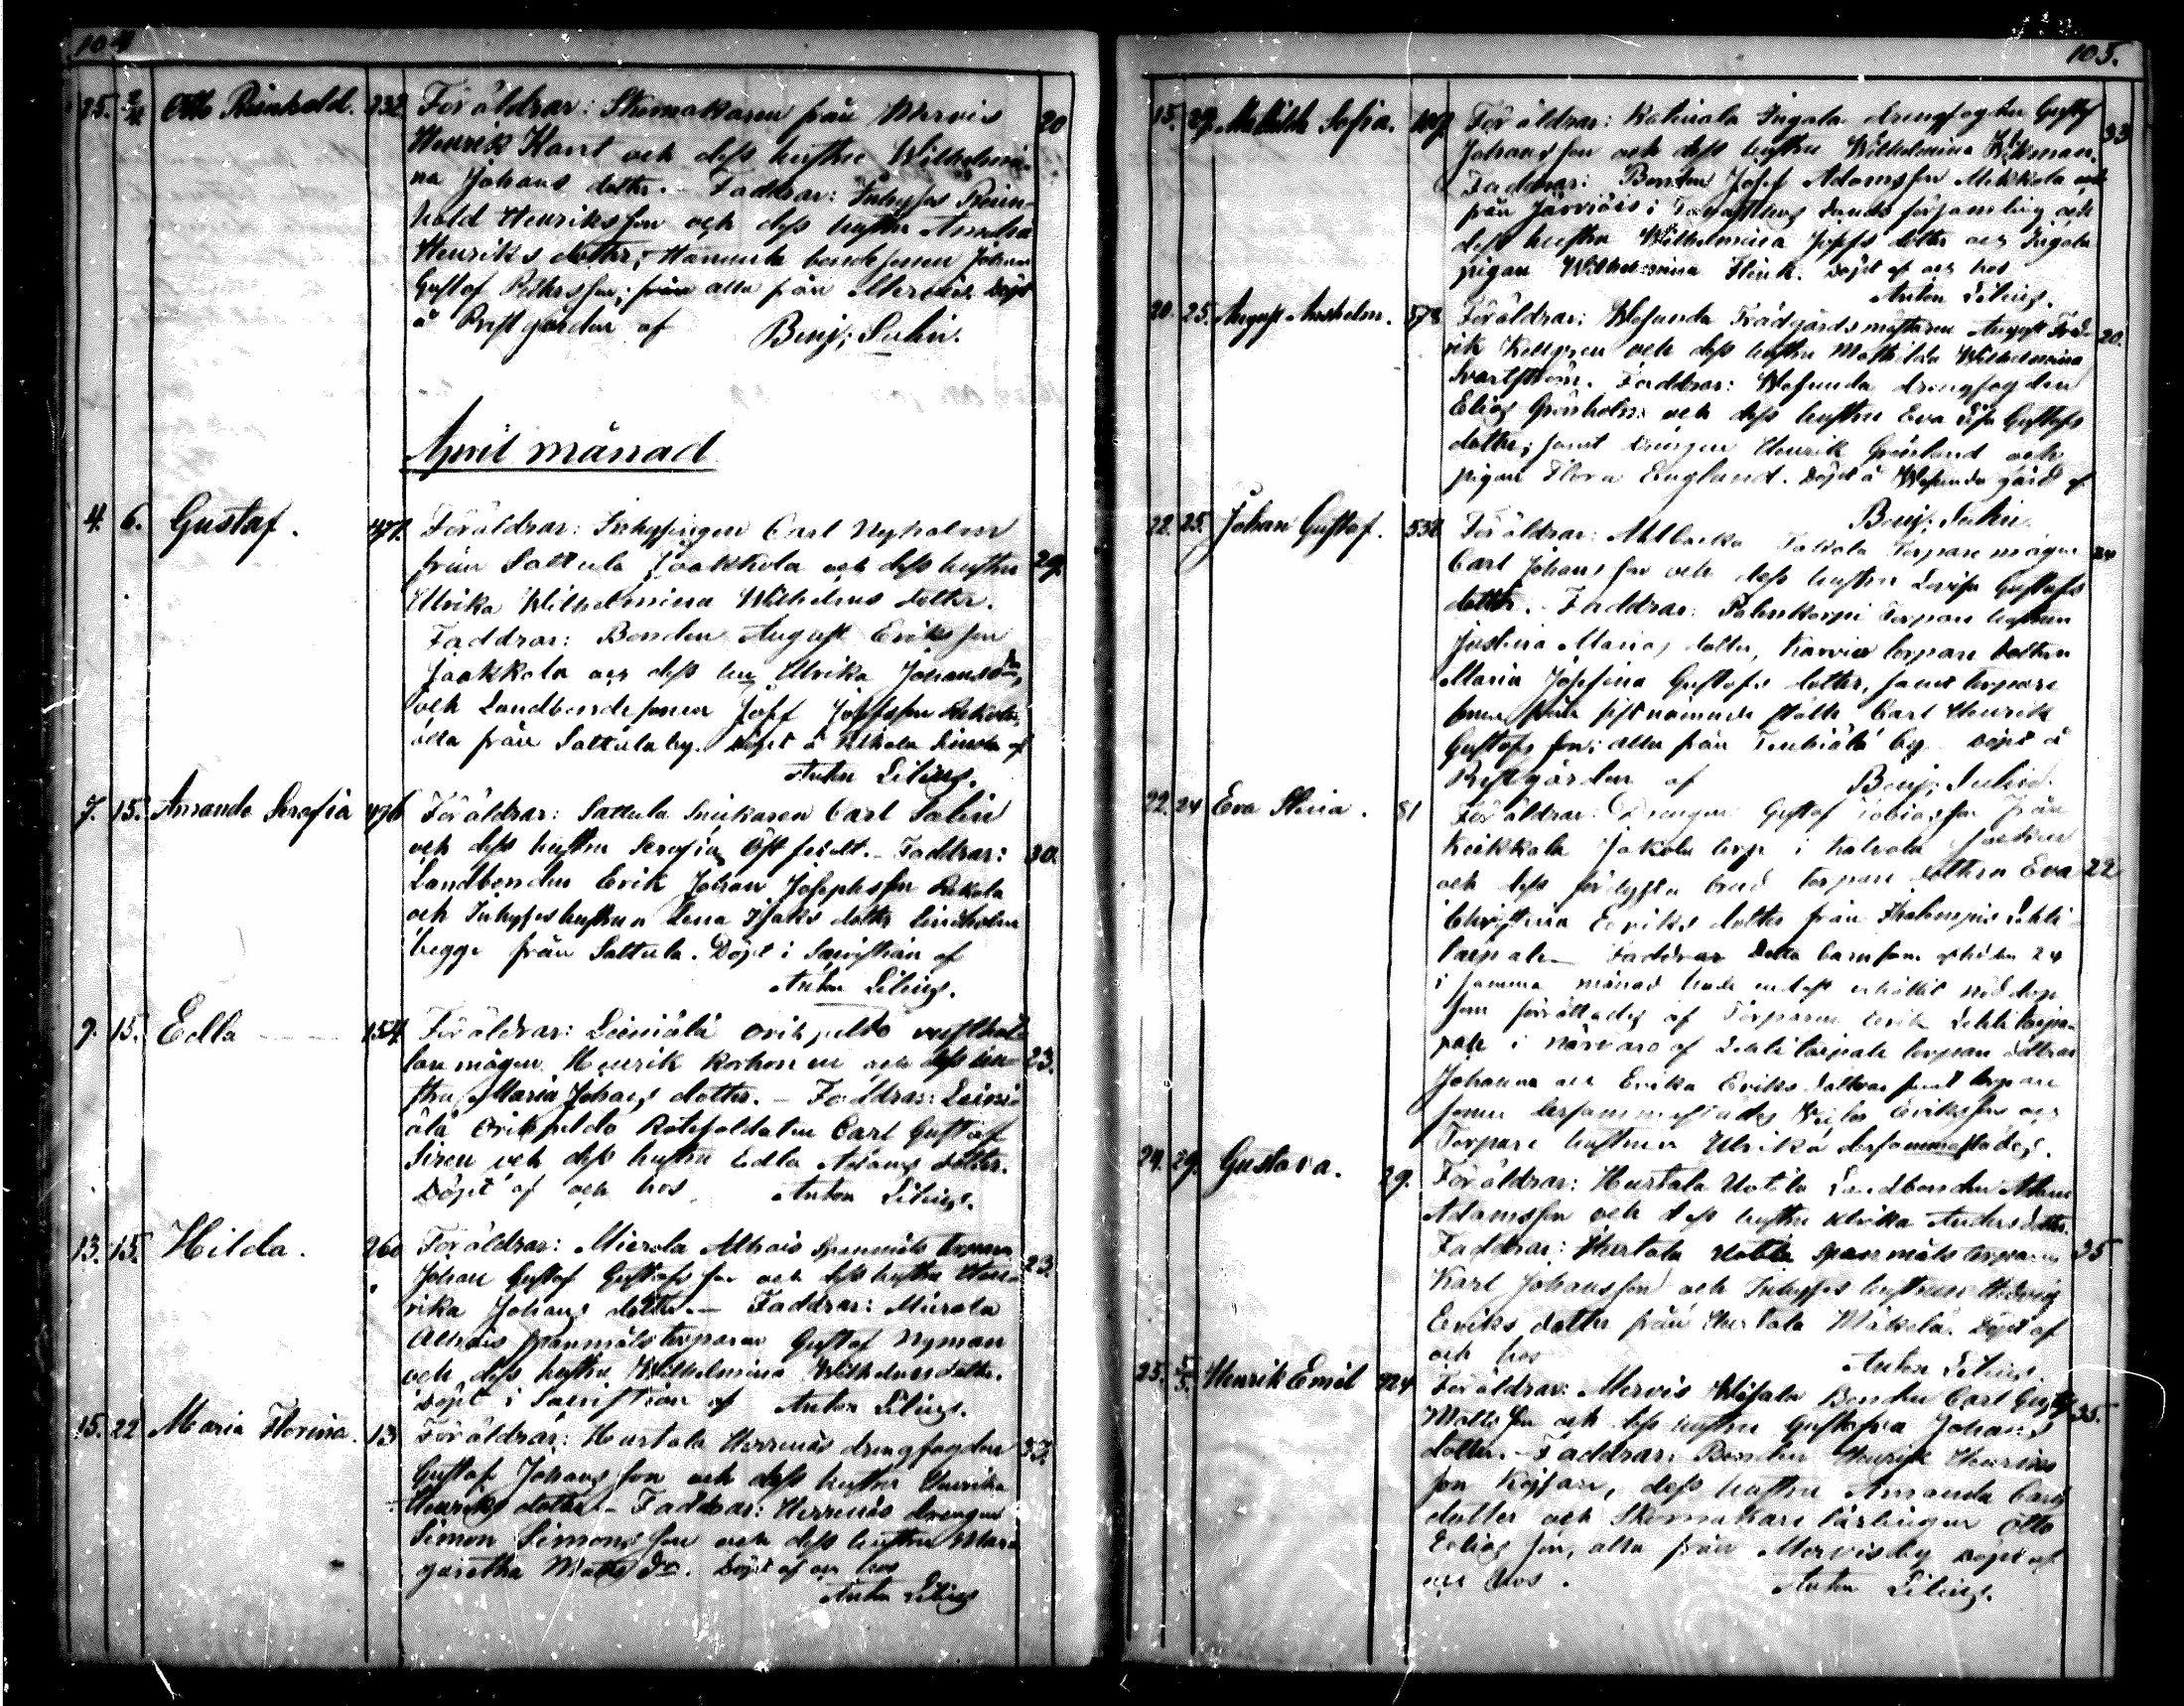 104
25. 2/4 Otto Reinhold. 232 Föräldrar: Skomakaren från Mervis 20
Henrik Kant och dess hustru Wilhelmi-
na Johans dotter. - Faddrar: Inhyses Rein-
hold Henriksson och dess hustru Amalia
Henriks dotter; Hannula bondesonen Johan
Gustaf Petterson; alla från Mervis. Döpt
å Prestgården af Benj: Salin.
April månad
4. 6. Gustaf. 471. Föräldrar: Inhysingen Carl Nyholm
från Sattula Jaakkola och dess hustru 29.
Ulrika Wilhelmina Wilhelms dotter.
Faddrar: Bonden August Eriksson
Jaakkola och dess hu Ulrika Johansdr,
och Landbondesonen Josef Josefsson Rekola,
alla från Sattula by. Döpt å Rekola af
Anton Lilius.
7. 15. Amanda Serafia 496 Föräldrar: Sattula Snickaren Carl Salin
och dess hustru Serafia Öst - Faddrar: 30.
Landbonden Erik Johan Josephsson Rekola
och Inhyseshustrun Lena Isaks dotter Lindholm
begge från Sattula. Döpt i Sacristian af
Anton Lilius.
9. 15. Edla 154 Föräldrar: Leiniälä Orihpeldo
mågen Henrik Korhonen och dess hu- 23.
stru Maria Johans dotter. - Faddrar: Leini-
älä Orihpeldo Rotesoldaten Carl Gustaf
Siren och dess hustru Edla Adams dotter.
Döpt af och hos Anton Lilius.
13. 15. Hilda. 260 Föräldrar: Mierola Alhais Spanmåls torparen
Johan Gustaf Gustafsson och dess hustru Hen- 23.
rika Johans dotter. - Faddrar: Mierola
Alhais spanmåls torparen Gustaf Nyman
och dess hustru Wilhelmina Wilhelmsdotter.
Döpt i Sacristian af Anton Lilius.
15. 22 Maria Florina. 13 Föräldrar: Hurtala Herrnäs drengfogden 37.
Gustaf Johansson och dess hustru Henrika
Henriks dotter. - Faddrar: Herrnäs drengen
Simon Simonsson och dess hustru Mar-
garetha Matts Dr. Döpt af och hos
Anton Lilius
105.
15. 29. Mathilda Sofia. 107 Föräldrar: Katinala Ingala drengfogden Gustaf 33
Johansson och dess hustru Wilhelmina Wikman.
Faddrar: Bonden Josef Adamsson Mikkola
från Järviöis i Tavastkyro Lands församling och
dess hustru Wilhelmina Josefs dotter och Ingala
pigan Wilhelmina Flink. Döpt af och hos
Anton Lilius.
20. 25. August Anshelm. 578 Föräldrar: Wesunda Trädgårdsmästaren August Fred- 20.
rik Kellgren och dess hustru Mathilda Wilhelmina
Svartström. Faddrar: Wesunda drengfogden
Elias Grönholm och dess hustru Eva Lisa Gustafs
dotter; samt drängen Henrik Grönlund och
pigan Flora Englund. Döpt å Wesunda gård af
Benj. Salin.
22. 25. Johan Gustaf. 532 Föräldrar: Ahlbacka Torpare mågen 24
Carl Johansson och dess hustru Lovisa Gustafs
dotter. - Faddrar: torpare hustrun
Justina Marias dotter, Karvia torpare dottern
Maria Josefina Gustafs dotter, samt torpare
sonen från sistnämnde ställe Carl Henrik
Gustafsson; alla från by döpt å
Prestgården af Benj. Salin.
22. 24 Eva Stina. 81 Föräldrar: Drengen Gustaf Tobiasson från
Kuikkala Jakola torp i Kalvola socken
och dess förlofvade brud torpare dottern Eva 22
Christina Eriks dotter från Lehti-
- Faddrar Detta barn som afled den 24
i samma månad hade endast erhållit nöddop
som förrättades af Torparen Erik
i närvaro af torpare döttrar
Johanna och Erika Eriks döttrar samt torpare
sonen dersammastädes Eriksson och
Torpare hustrun Ulrika dersammastädes.
24. 29. Gustava. 29. Föräldrar: Hurtala Uotila Landbonden Adam
Adamsson och dess hustru Ulrika Anders dotter.
Faddrar: Hurtala Uotila Spanmåls torparen 35
Karl Johansson och Inhyses hustrun Hedvig
Eriks dotter från Hurtala Mäkelä. Döpt af
och hos Anton Lilius.
25. 5/5. Henrik Emil 424 Föräldrar: Mervis Wäisälä Bonden Carl Gustaf 35.
Mattsson och dess hustru Gustafva Johans
dotter. - Faddrar: Bonden Henrik Henriks
son Kejsare, dess hustru Amanda Carls
dotter och Skomakare lärlingen Otto
Eliasson, alla från Mervisby döpt af
och hos. Anton Lilius.